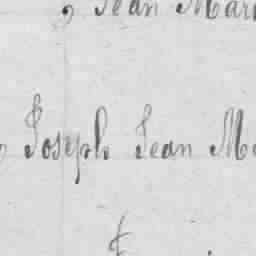 , Jean Mari
, Joseph Jean M